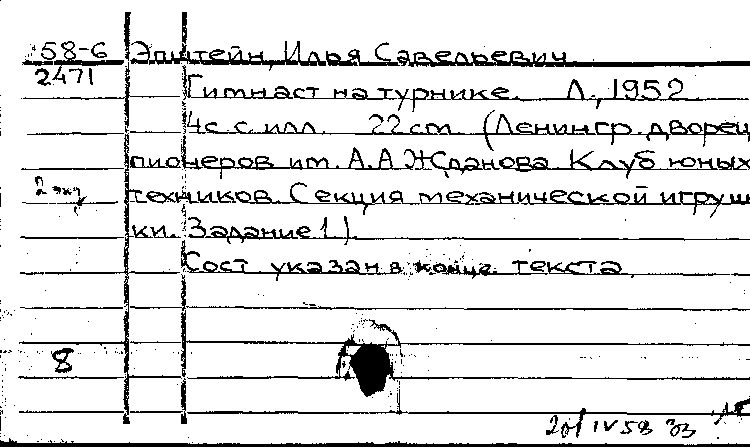 58-6 Эпштейн, Илья Савельевич.
2471 Гимнаст на турнике. Л., 1952
4с. с илл. 22 cm (Ленингр. дворец
пионеров им. А.А Жданова Клуб юных
2 экз техников. Секция механической игруш
ки. Задание 1.).
Сост указан в конце текста.
8
20/IV 58